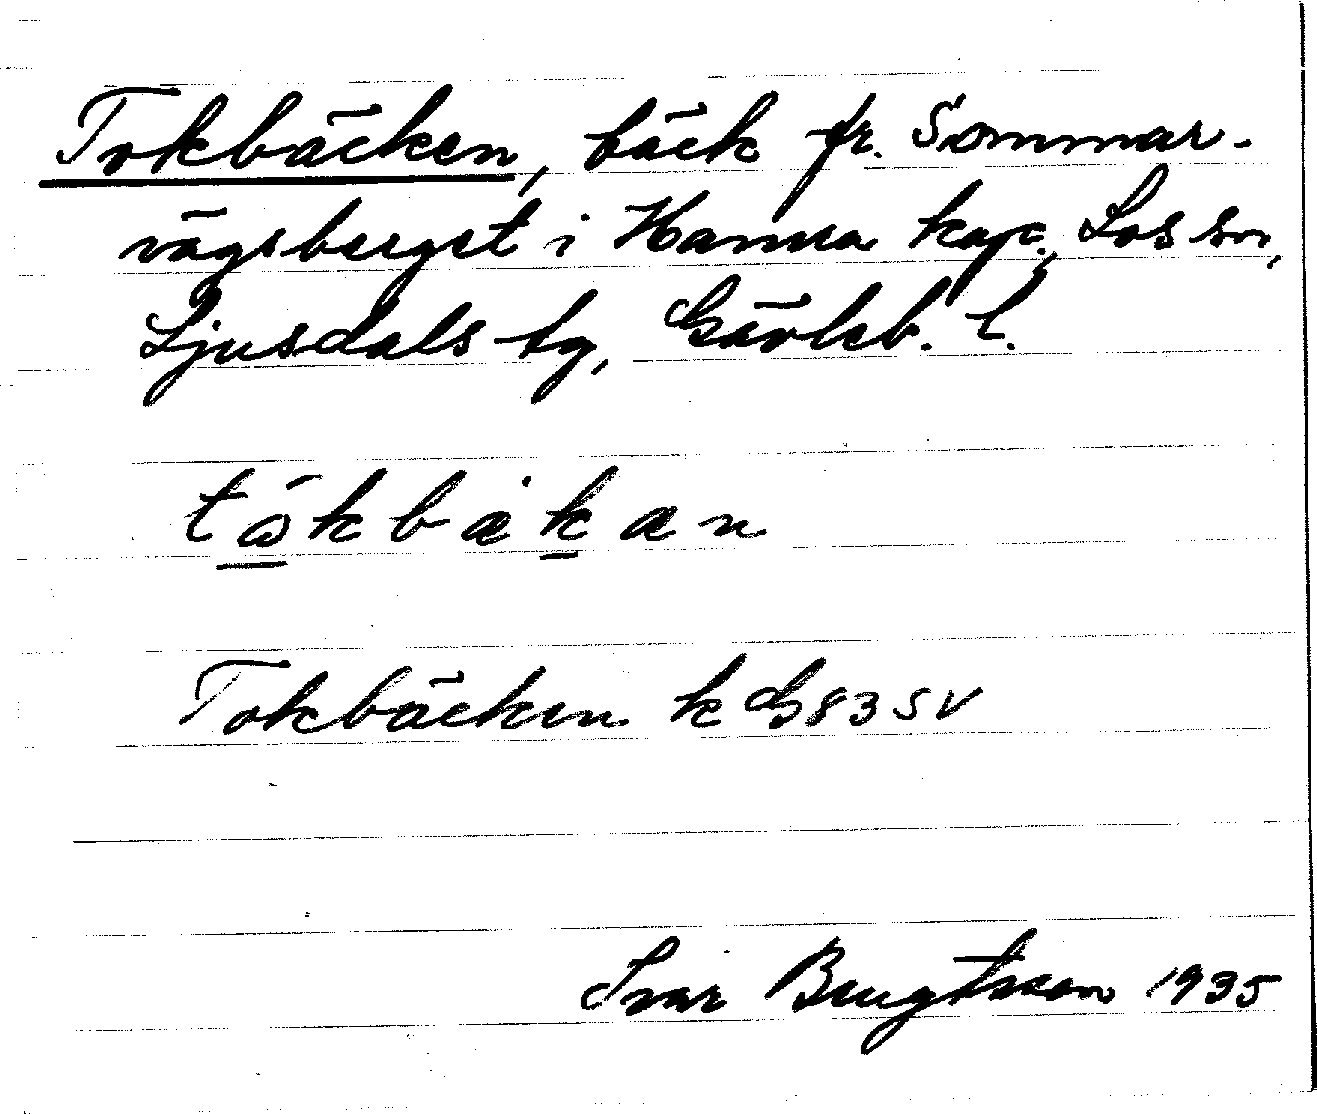 Tokbäcken, bäck fr. Sommar-
vägsberget i Hamra kap., Los sn,
Ljusdals tg, Gävleb. l.
tåkbækæn
Tokbäcken k G83SV
Ivar Bengtsson 1935